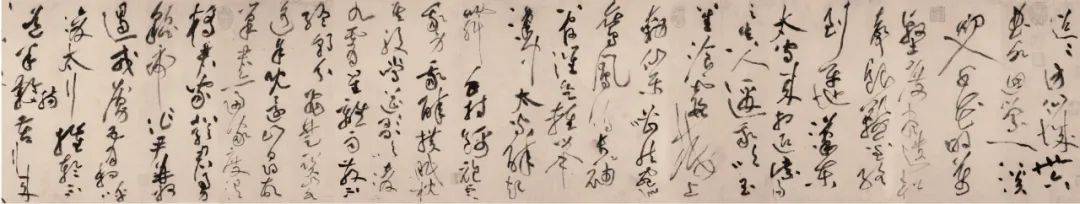 迢迢訪仙城卅六
曲水迴縈一溪
初入千花明萬
壑度盡松風聲
銀鞍金絡
到平地漢東
太守來相迎紫陽
之真人邀我吹玉
笙湌霞樓上
動仙樂嘈然宛似
鸞鳳鳴袖
長管催輕舉
漢中太守醉起
舞手持錦袍
覆我身我醉橫眠枕
其股當筵意氣凌
九霄星離雨散不
終朝分飛楚關
山水遙余既還山尋故
巢君亦歸家度渭
橋君家嚴君勇
貔虎作尹并州
遏戎虜五月相呼
度太行摧輪不
道羊腸苦行來